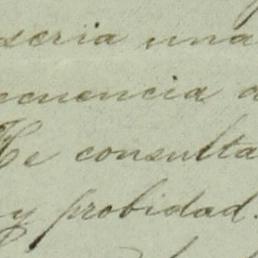 seria una
cuencia
He consulta
y probidad.